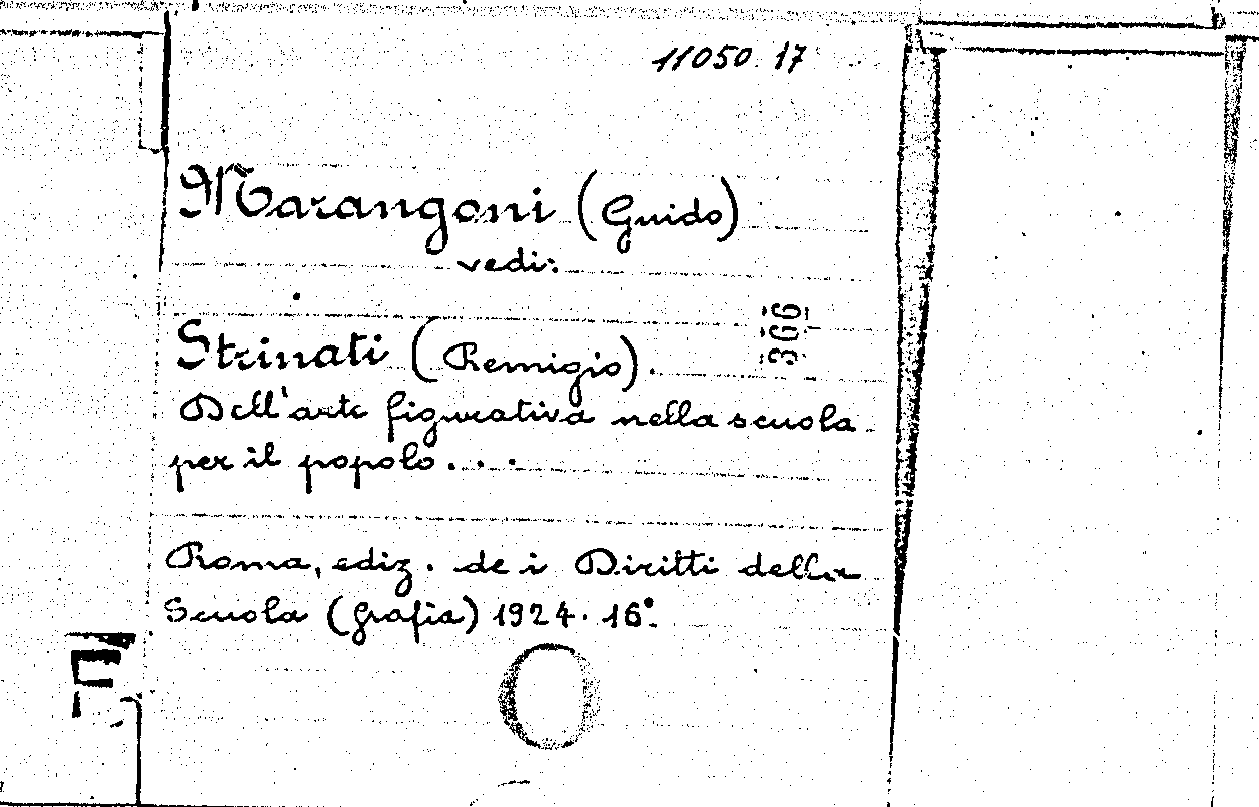 11050. 17
Marangoni (Guido)
vedi:
Strinati (Remigio).
366
Dell'arte figurativa nella scuola
per il popolo . . .
Roma, ediz. de i Diritti della
Scuola (Grafia) 1924. 16°.
F